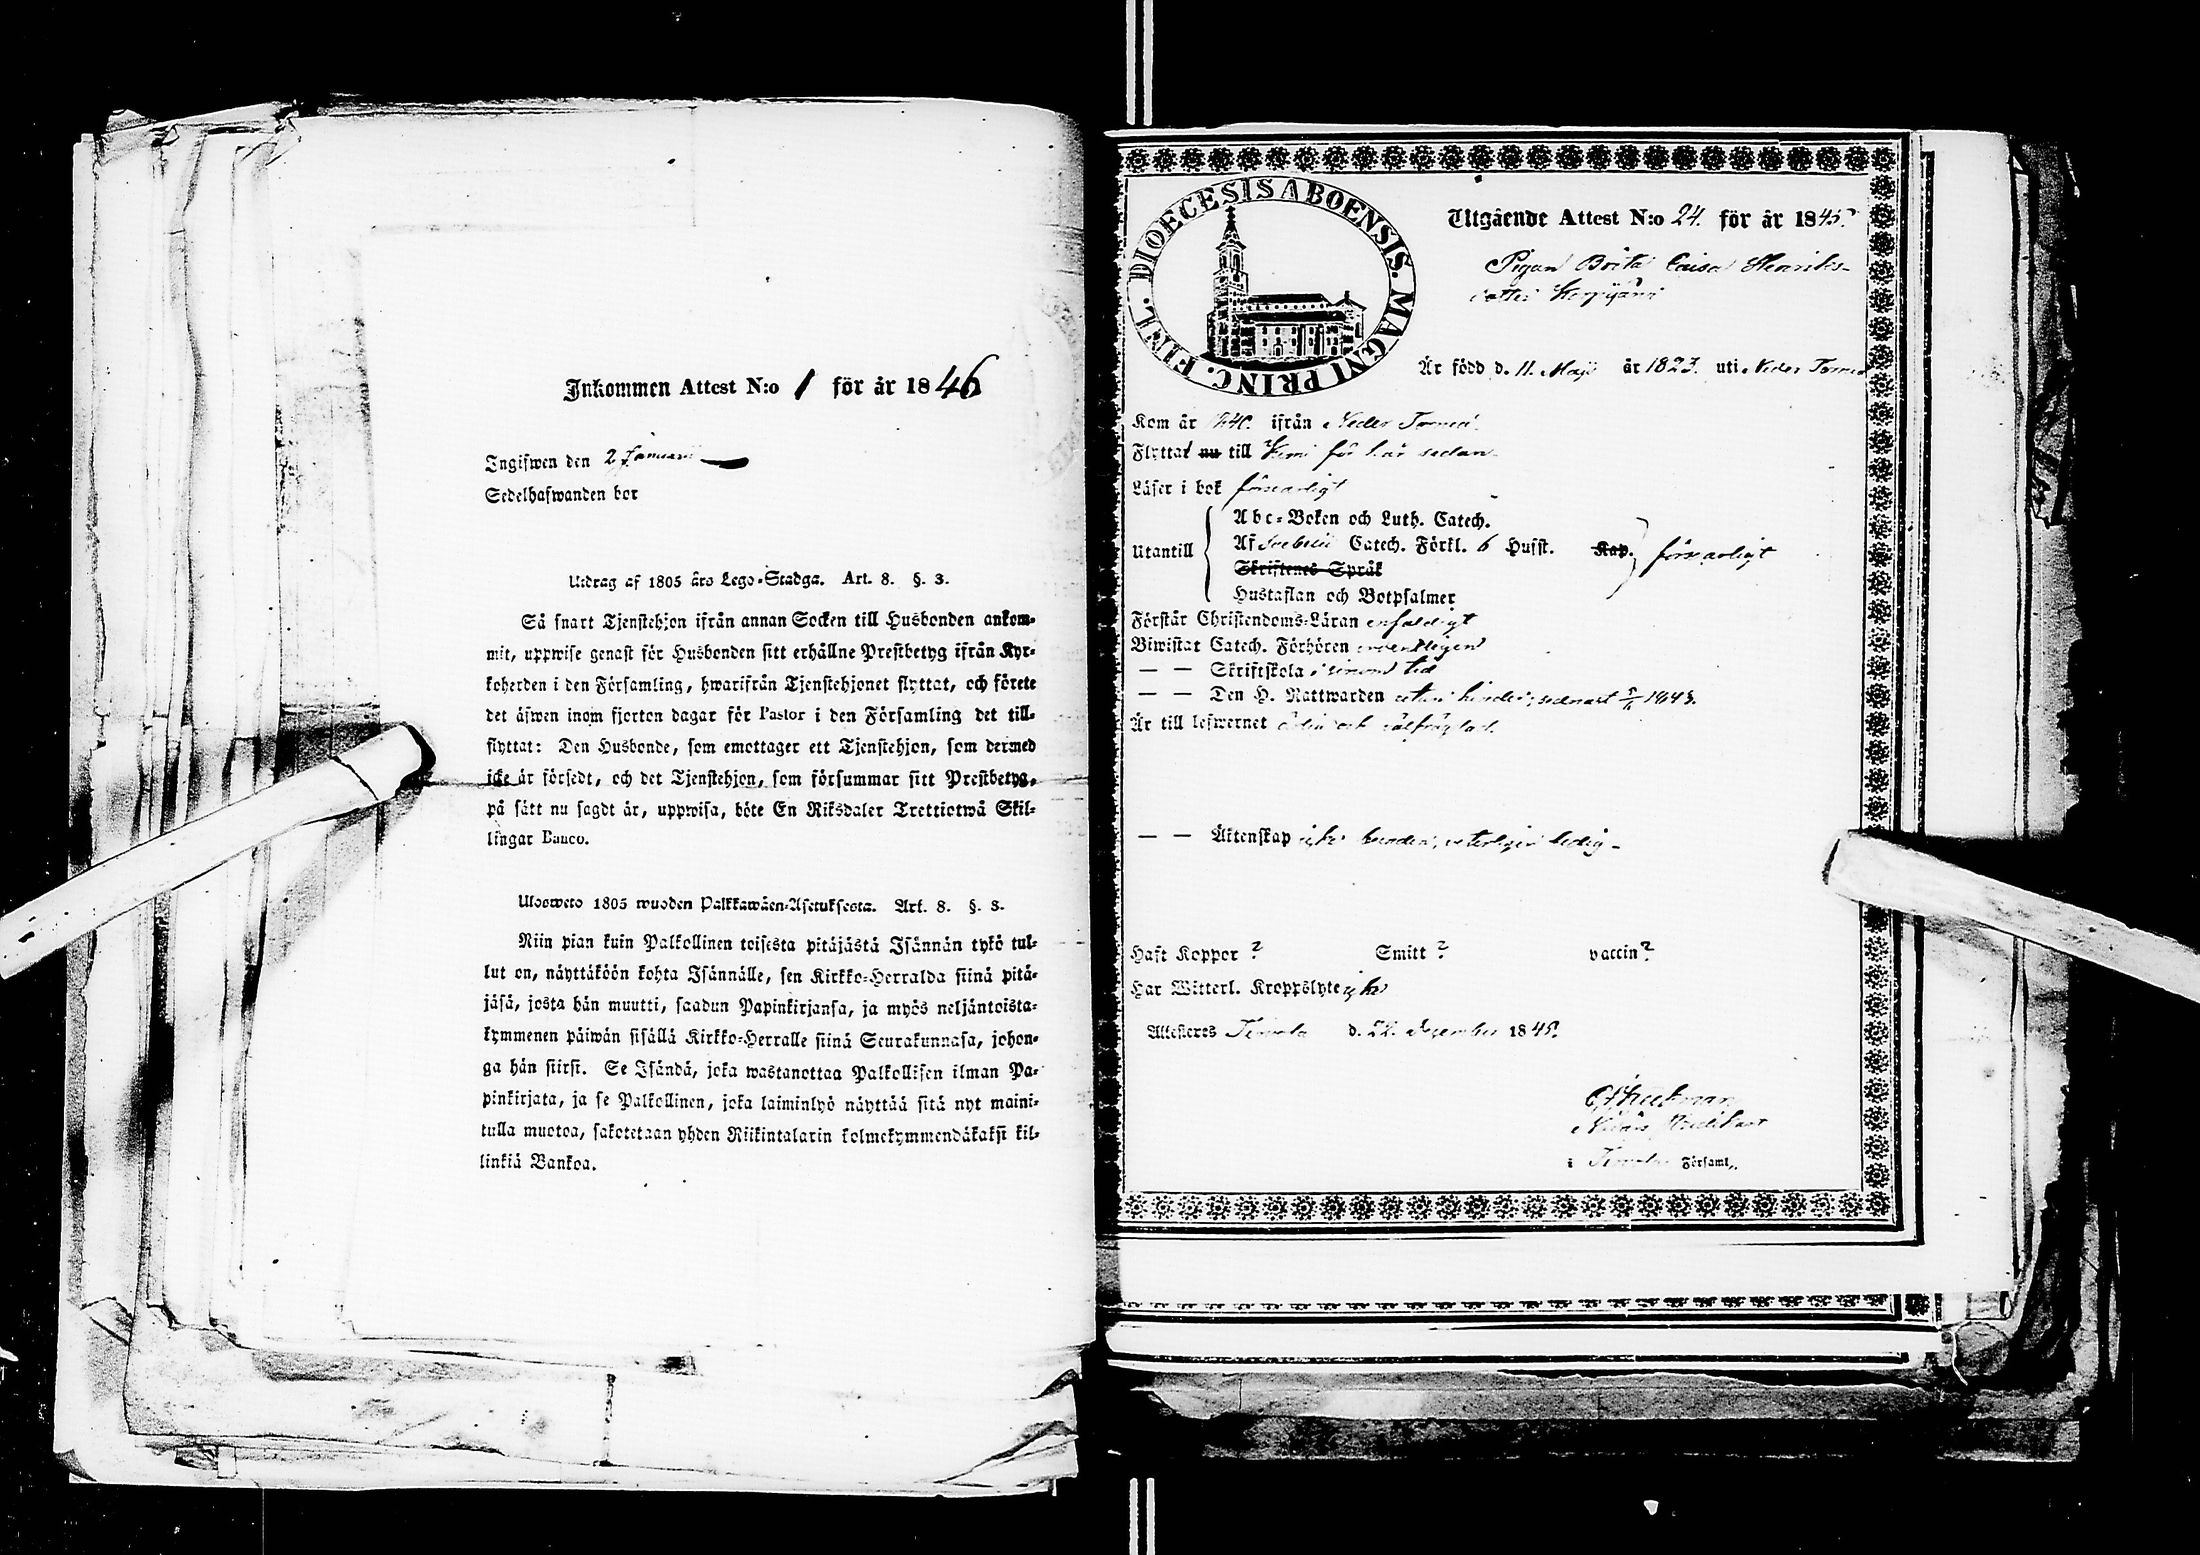 Inkommen Attest N:o 1 för år 1846
Ingifwen den 2 Januarii
Sedelhafwanden bor
Utdrag af 1805 års Lego-Stadga. Art. 8. §. 3.
Så snart Tjenstehjon ifrån annan Socken till Husbonden ankom-
mit, uppwise genast för Husbonden sitt erhållne Prestbetyg ifrån Kyr-
koherden i den Församling, hwarifrån Tjenstehjonet flyttat, och förete
det äfwen inom fjorton dagar för Pastor i den Församling det till-
flyttat: Den Husbonde, som emottager ett Tjenstehjon, som dermed
icke är försedt, och det Tjenstehjon, som försummar sitt Prestbetyg,
på sätt nu sagdt är, uppwisa, böte En Riksdaler Trettiotwå Skil-
lingar Banco.
Ulosweto 1805 wuoden Palkkawäen-Asetuksesta. Art. 8. §. 3.
Niin pian kuin Palkollinen toisesta pitäjästä Isännän tykö tul-
lut on, näyttäköön kohta Isännälle, sen Kirkko-Herralda siinä pitä-
jäsä, josta hän muutti, saadun Papinkirjansa, ja myös neljäntoista-
kymmenen päiwän sisällä Kirkko-Herralle siinä Seurakunnasa, johon-
ga hän siirsi. Se Isändä, joka wastanottaa Palkollisen ilman Pa-
pinkirjata, ja se Palkollinen, joka laiminlyö näyttää sitä nyt maini-
tulla muotoa, sakotetaan yhden Riikintalarin kolmekymmendäkaksi kil-
linkiä Bankoa.
DIOECESIS ABOENSIS. MAGNI PRINC. FINL.
Utgående Attest N:o 24. för år 1845.
Pigan Brita Caisa Henriks-
dotter
Är född d. 11. Maji år 1823. uti Neder Torneå
Kom år 1840. ifrån Neder Torneå.
Flyttat nu till Kemi för 1. år sedan.
Läser i bok försvarligt
Utantill
Abc-Boken och Luth. Catech.
Af Svebelii Catech. Förkl. 6 Hufst. Kap. försvarligt
Skriftenes Språk
Hustaflan och Botpsalmer
Förstår Christendoms-Läran enfaldigt
Biwistat Catech. Förhören ordentligen
— — Skriftskola i sinom tid
— — Den H. Nattwarden utan hinder, sednast 1843.
Är till lefwernet ärlig och välfrägdad.
— — Äktenskap icke bunden, veterligen ledig.
Haft Koppor ? Smitt ? vaccin ?
Har Witterl. Kroppslyte icke
Attesteres Tervola d. 22. December 1845.
i Tervola Församl.